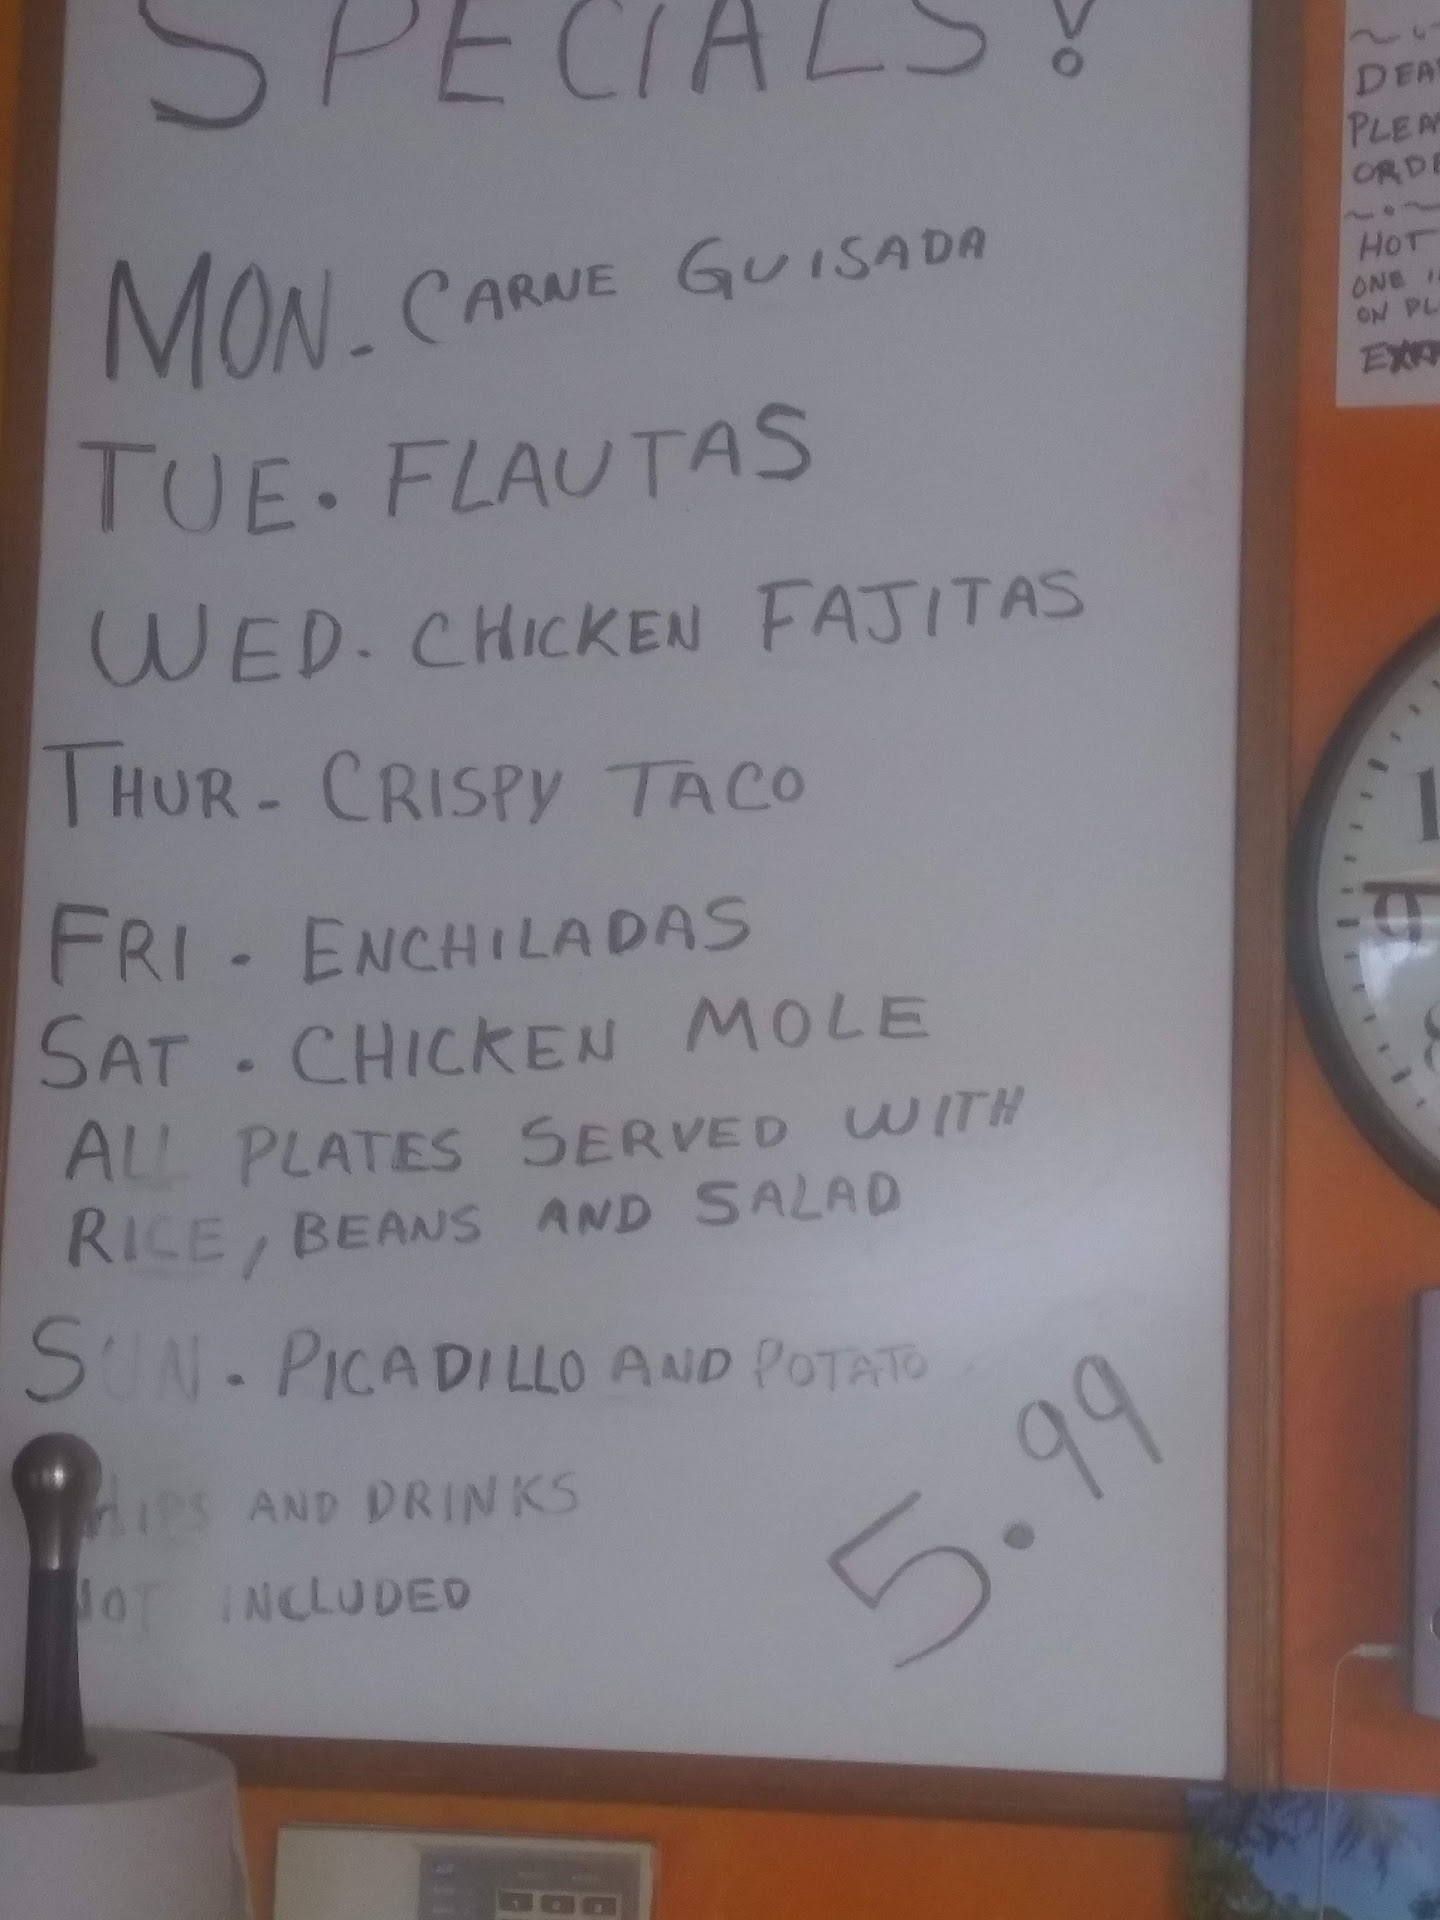 SPECIALS!
MON- CARNE GUISADA
TUE. FLAUTAS
WED. CHICKEN FAJITAS
THUR- CRISPY TACO
FRI. ENCHILADAS
SAT. CHICKEN MOLE
ALL PLATES SERVED WITH
RICE, BEANS AND SALAD
SUN. PICADILLO AND POTATO
5.99
HIPS AND DRINKS
NOT INCLUDED
DEA
PLEA
ORDE
HOT
ONE
ON PL